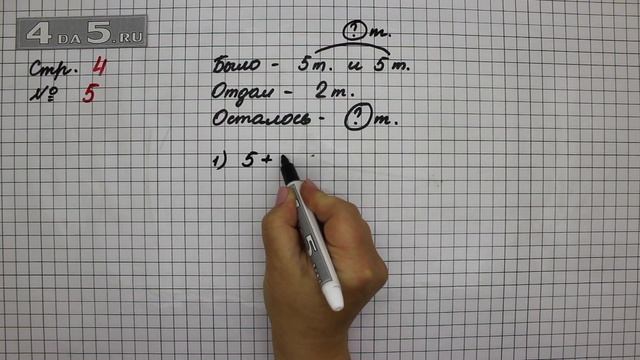 4 DA 5.RU
Стр. 4
№ 5
? т.
Было - 5т. и 5т.
Отдал - 2т.
Осталось - ? т.
1) 5 +